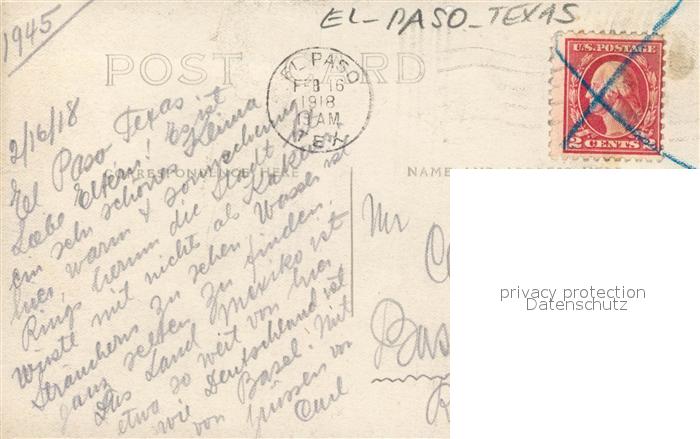 1945
EL-PASO-TEXAS
POST CARD
EL PASO
FEB 16
1918
AM
TEX
U.S. POSTAGE
2 CENTS 2
CORRESPONDENCE HERE
NAME AND ADDRESS HERE
2/16/18
El Paso Texas
Liebe Eltern! Es ist
ein sehr schönes Kleima
hier, warm &
Rings herum die Stadt ist
Wüste mit nichts als Kaktus
Sträuchern zu sehen. Wasser ist
ganz selten zu finden.
Das Land Mexiko ist
etwa so weit von hier
wie Deutschland ist
von Basel. Mit
Grüssen von
Carl
Mr
privacy protection
Datenschutz